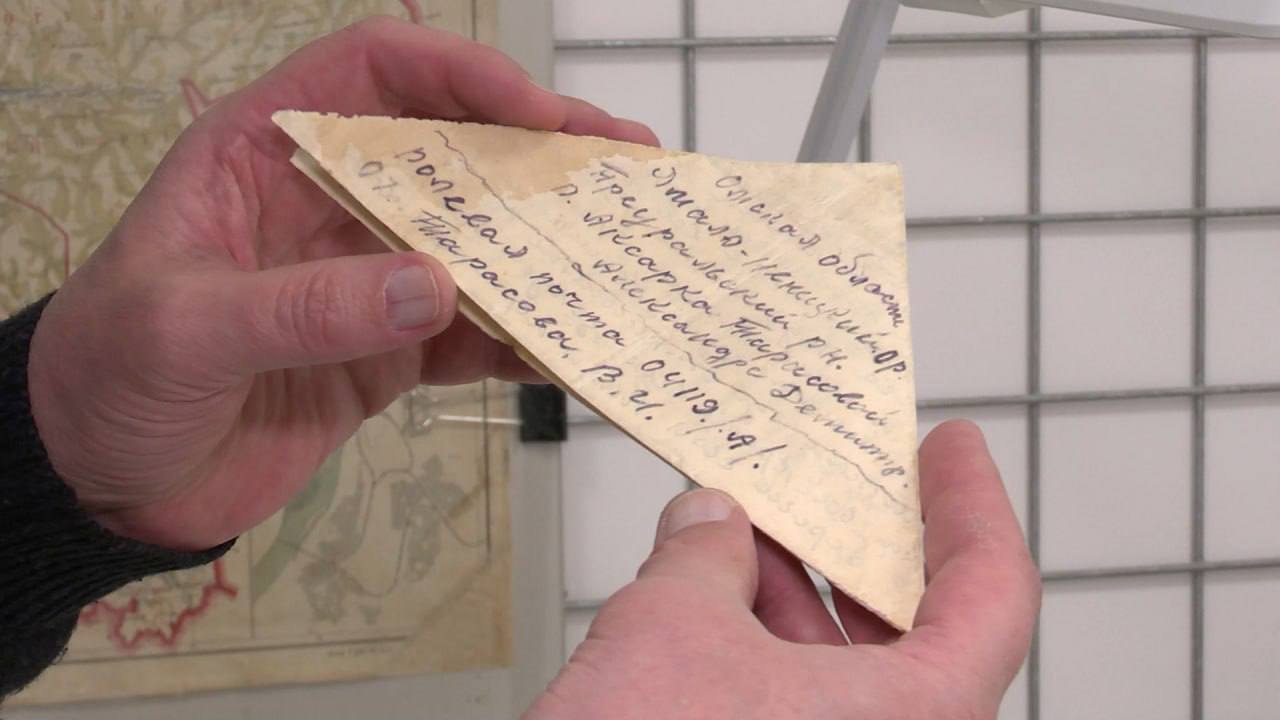 Омская область
Ямало-Ненецкий ор.
Преуральский рн.
п. Аксарка Тарасовой
Александре Дмитр.
полевая почта 04119./А/.
07.
Тарасова. В.И.